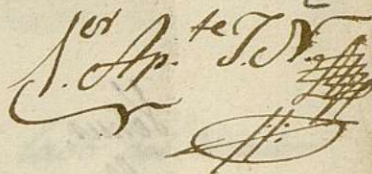 1.er Ap.te J. N.